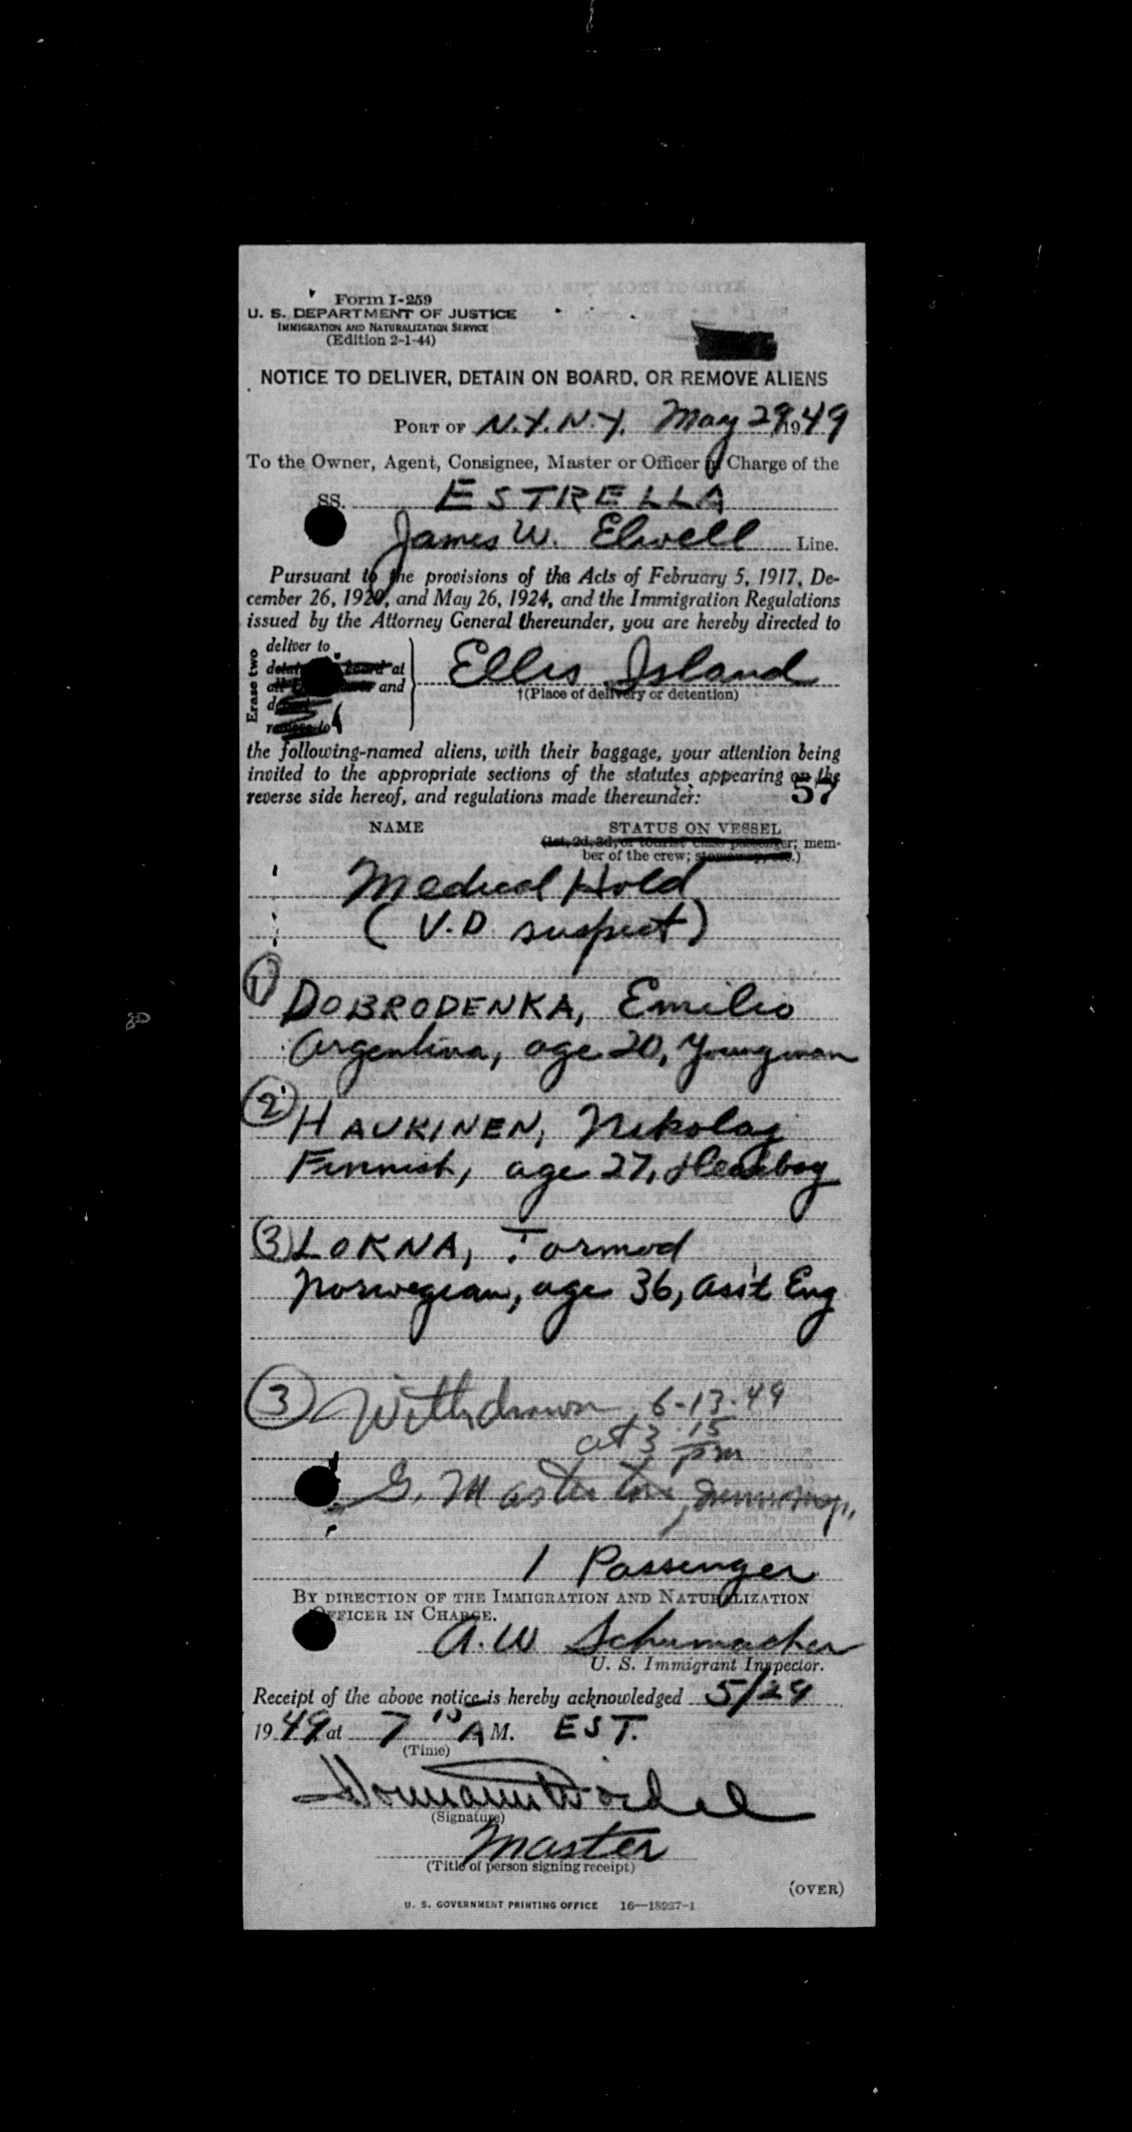 Form I-259
U. S. DEPARTMENT OF JUSTICE
IMMIGRATION AND NATURALIZATION SERVICE
(Edition 2-1-44)
NOTICE TO DELIVER, DETAIN ON BOARD, OR REMOVE ALIENS
PORT OF N.Y.N.Y. May 29, 1949
To the Owner, Agent, Consignee, Master or Officer in Charge of the
SS. ESTRELLA
James W. Elwell Line.
Pursuant to the provisions of the Acts of February 5, 1917, De-
cember 26, 1920, and May 26, 1924, and the Immigration Regulations
issued by the Attorney General thereunder, you are hereby directed to
Erase two
deliver to
at Ellis Island
and †(Place of delivery or detention)
remove to
the following-named aliens, with their baggage, your attention being
invited to the appropriate sections of the statutes appearing on the
reverse side hereof, and regulations made thereunder: 57
NAME STATUS ON VESSEL
(1st, 2d, 3d, or tourist class passenger; mem-
ber of the crew; stowaway, etc.)
Medical Hold
(V.D. suspect)
1 DOBRODENKA, Emilio
Argentina, age 20, Youngman
2 HAUKINEN, Nikolaj
Finnish, age 27, Messboy
3 LORNA, Tormod
Norwegian, age 36, Ass't Eng
3 Withdrawn 6-13-49
at 3 15 pm
G. Masterton,
1 Passenger
BY DIRECTION OF THE IMMIGRATION AND NATURALIZATION
OFFICER IN CHARGE.
A. W. Schumacher
U. S. Immigrant Inspector.
Receipt of the above notice is hereby acknowledged 5/29
1949 at 7 15 A M. EST.
(Time)
(Signature)
Master
(Title of person signing receipt)
(OVER)
U. S. GOVERNMENT PRINTING OFFICE 16—18937-1